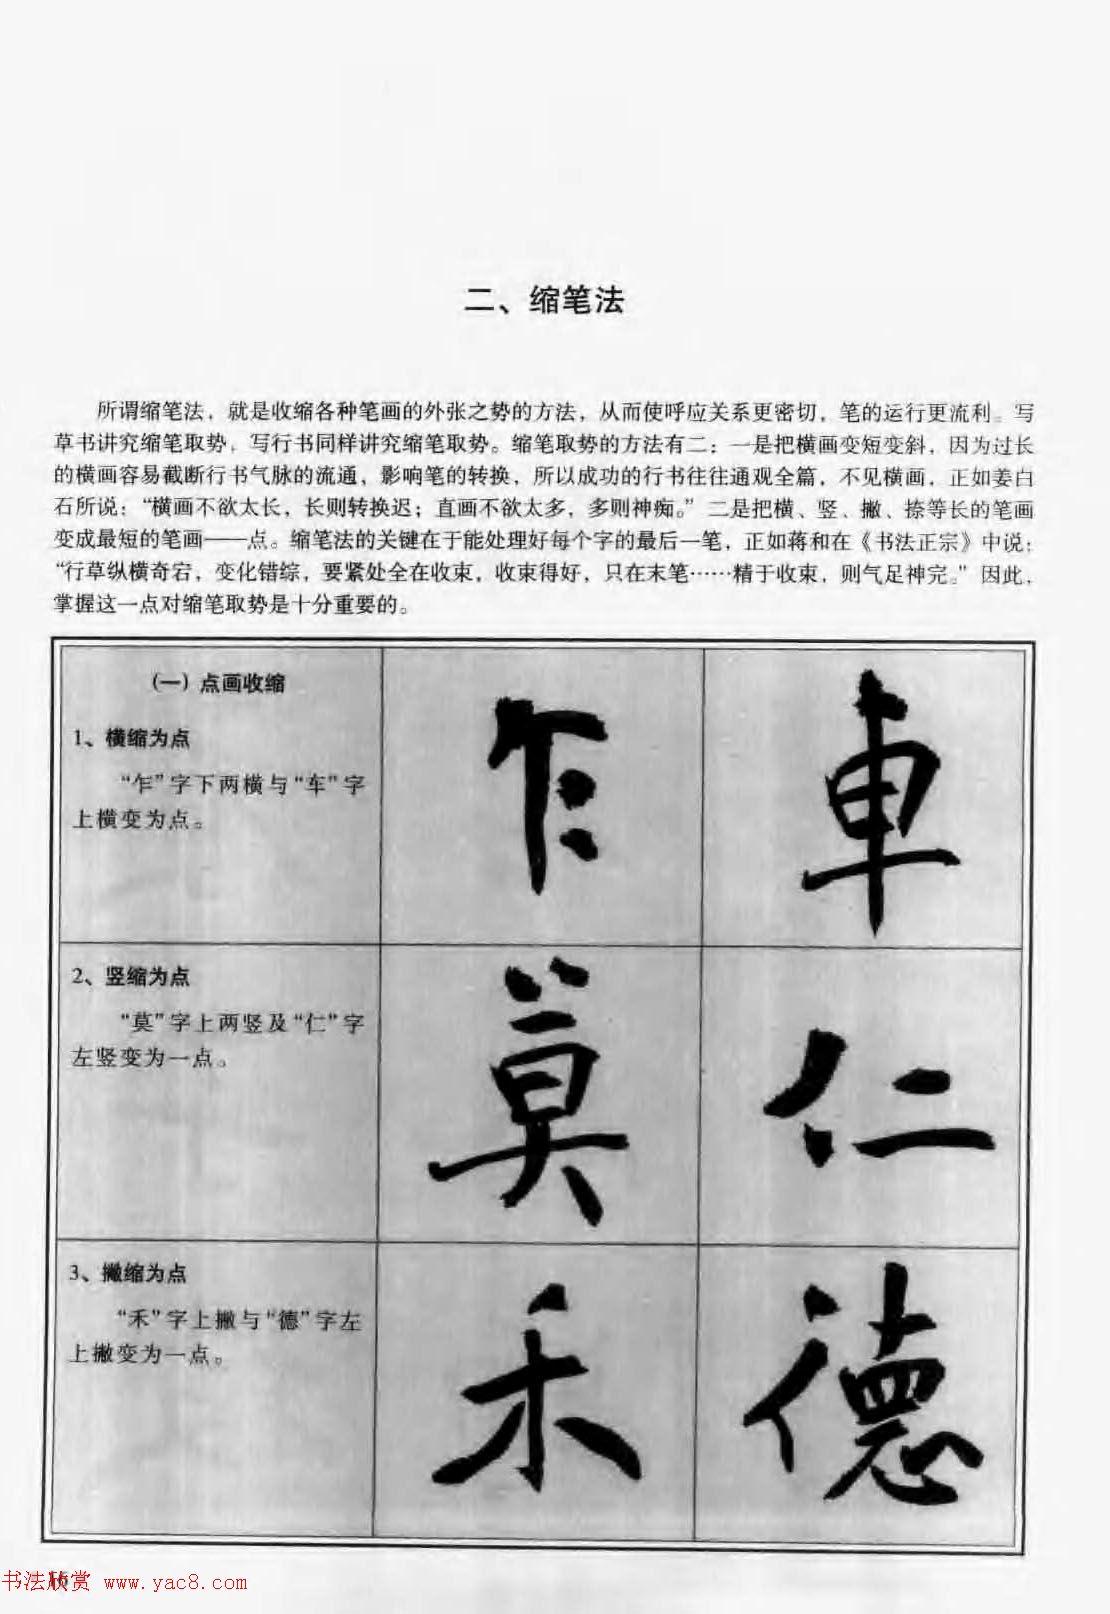 二、缩笔法
所谓缩笔法，就是收缩各种笔画的外张之势的方法，从而使呼应关系更密切，笔的运行更流利。写
草书讲究缩笔取势，写行书同样讲究缩笔取势。缩笔取势的方法有二：一是把横画变短变斜，因为过长
的横画容易截断行书气脉的流通，影响笔的转换，所以成功的行书往往通观全篇，不见横画，正如姜白
石所说：“横画不欲太长，长则转换迟；直画不欲太多，多则神痴。”二是把横、竖、撇、捺等长的笔画
变成最短的笔画——点。缩笔法的关键在于能处理好每个字的最后一笔，正如蒋和在《书法正宗》中说：
“行草纵横奇宕，变化错综，要紧处全在收束，收束得好，只在末笔……精于收束，则气足神完。”因此，
掌握这一点对缩笔取势是十分重要的。
（一）点画收缩
1、横缩为点
“乍”字下两横与“车”字
上横变为点。
乍 車
2、竖缩为点
“莫”字上两竖及“仁”字
左竖变为一点。
莫 仁
3、撇缩为点
“禾”字上撇与“德”字左
上撇变为一点。
禾 德
书法欣赏 www.yac8.com